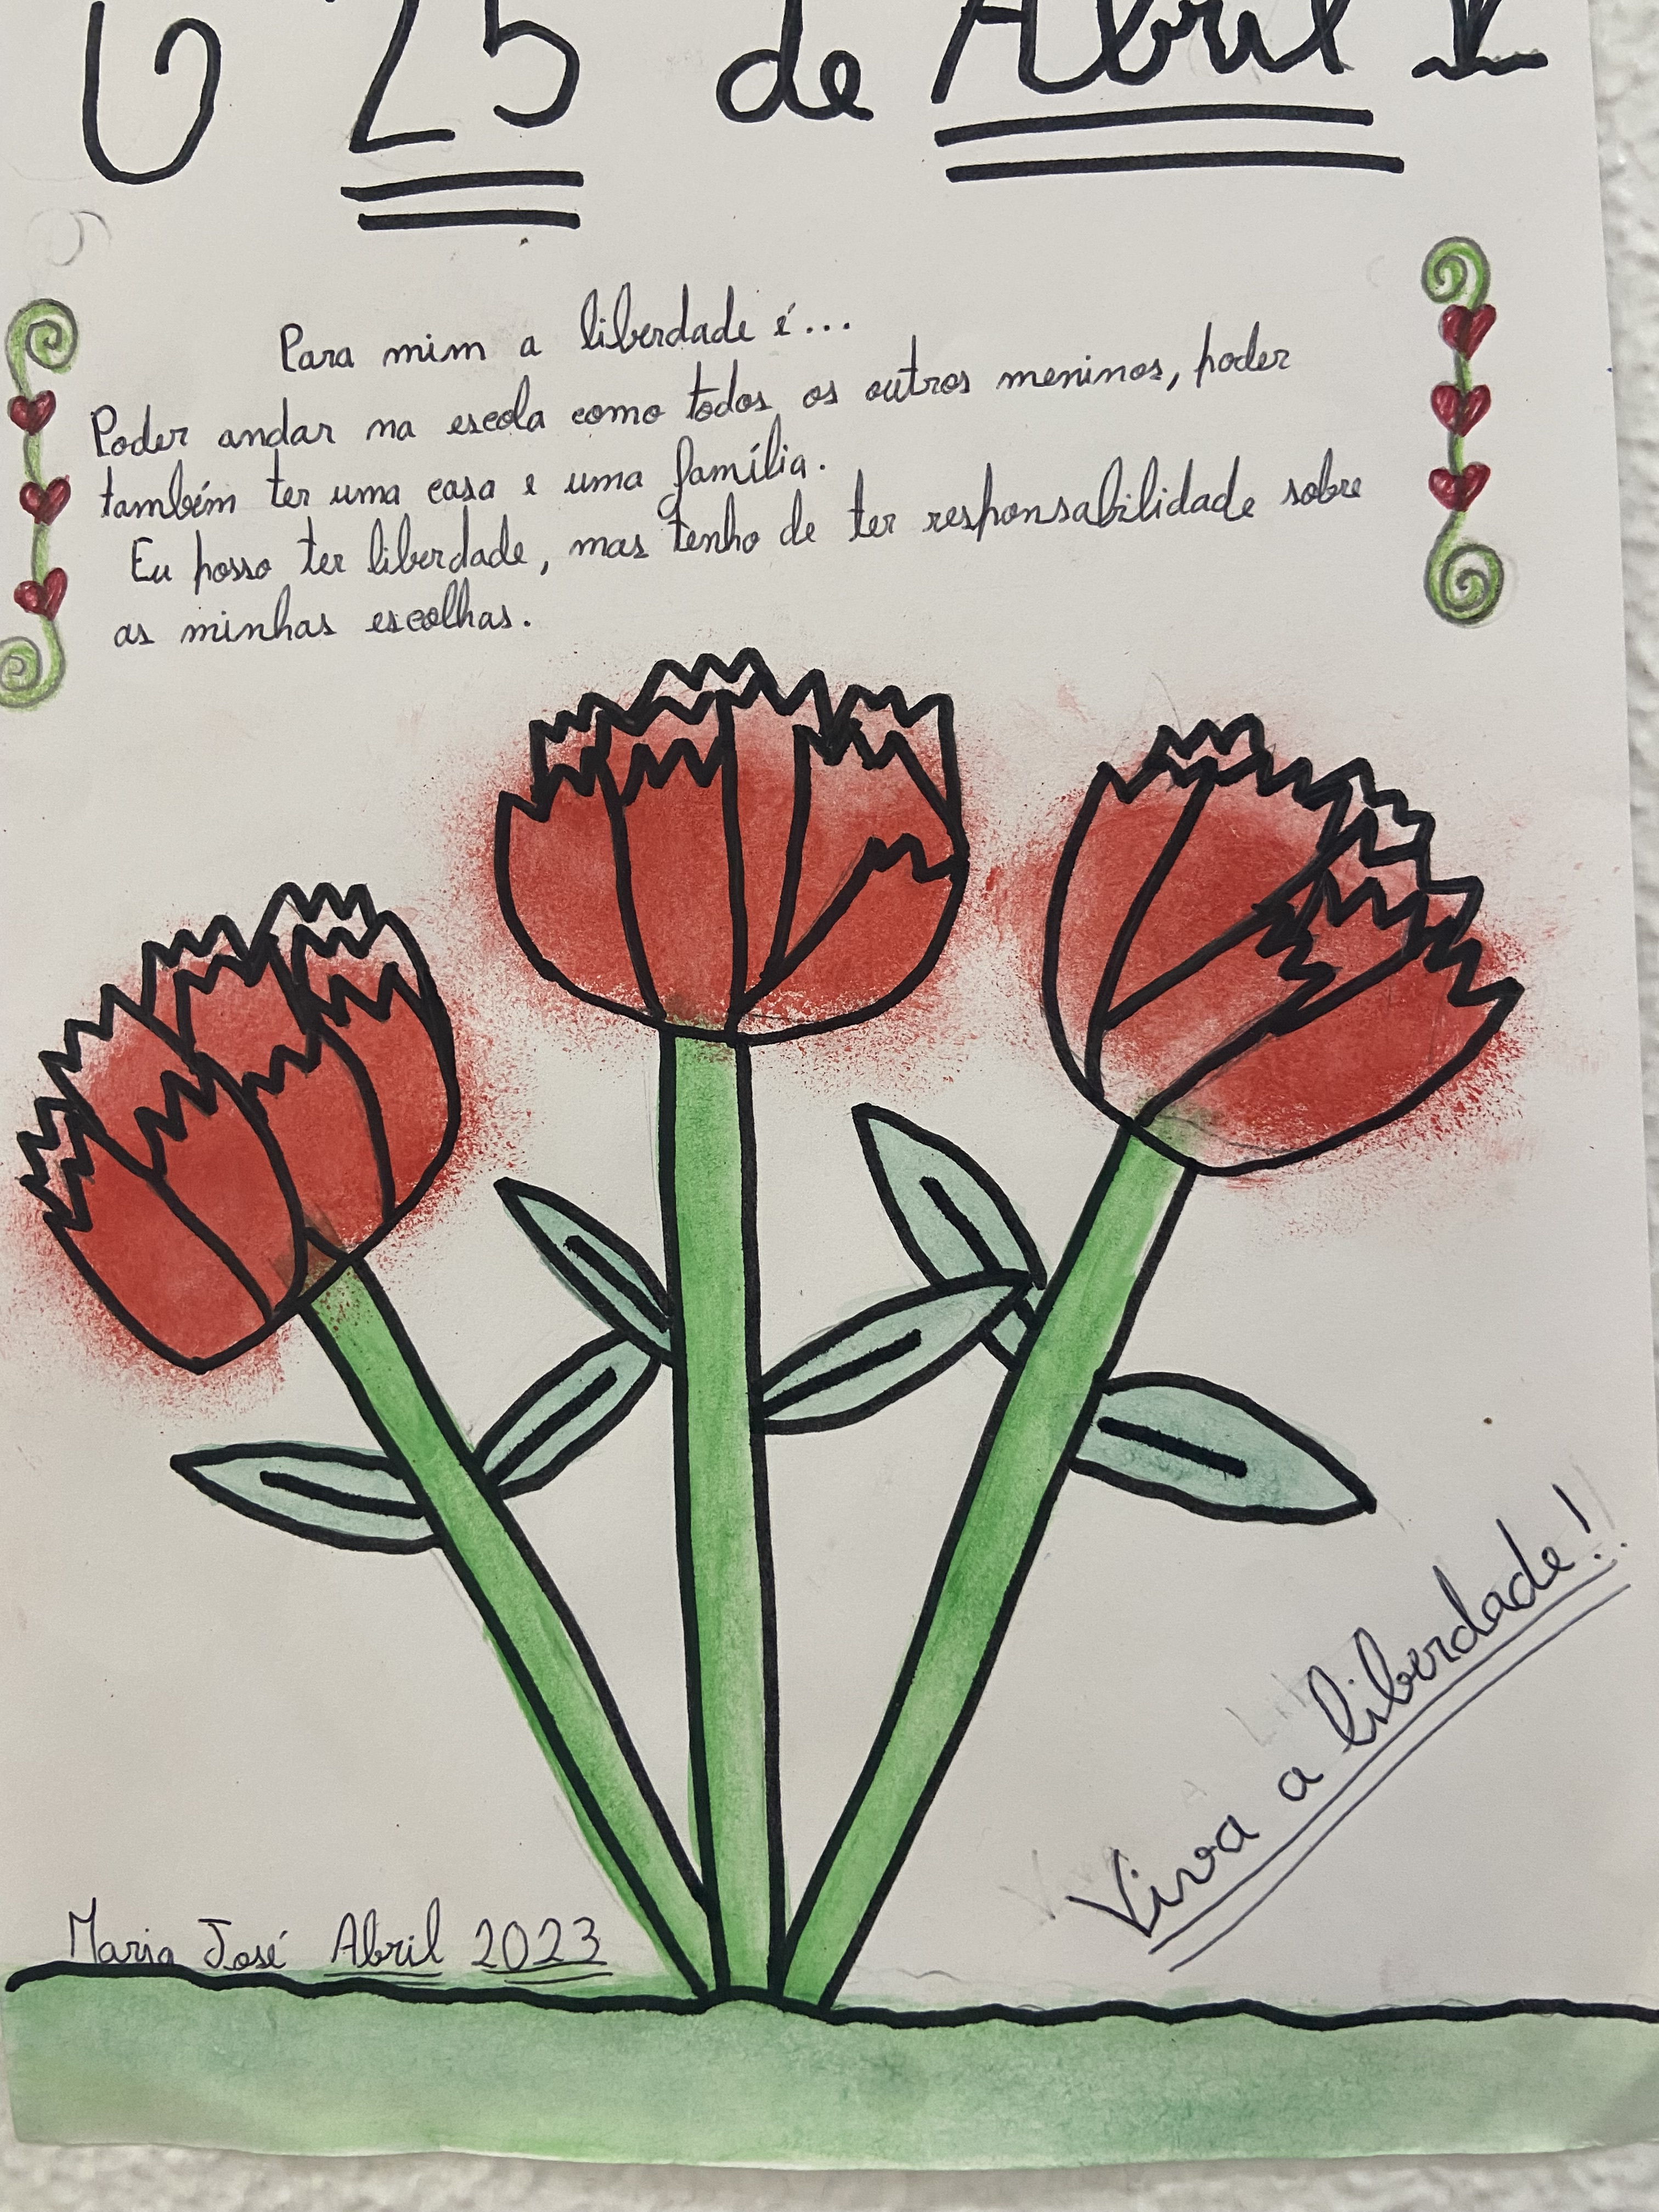 O 25 de Abril
Para mim a liberdade é...
Poder andar na escola como todos os outros meninos, poder
também ter uma casa e uma família.
Eu posso ter liberdade, mas tenho de ter responsabilidade sobre
as minhas escolhas.
Viva a liberdade!
Maria José Abril 2023